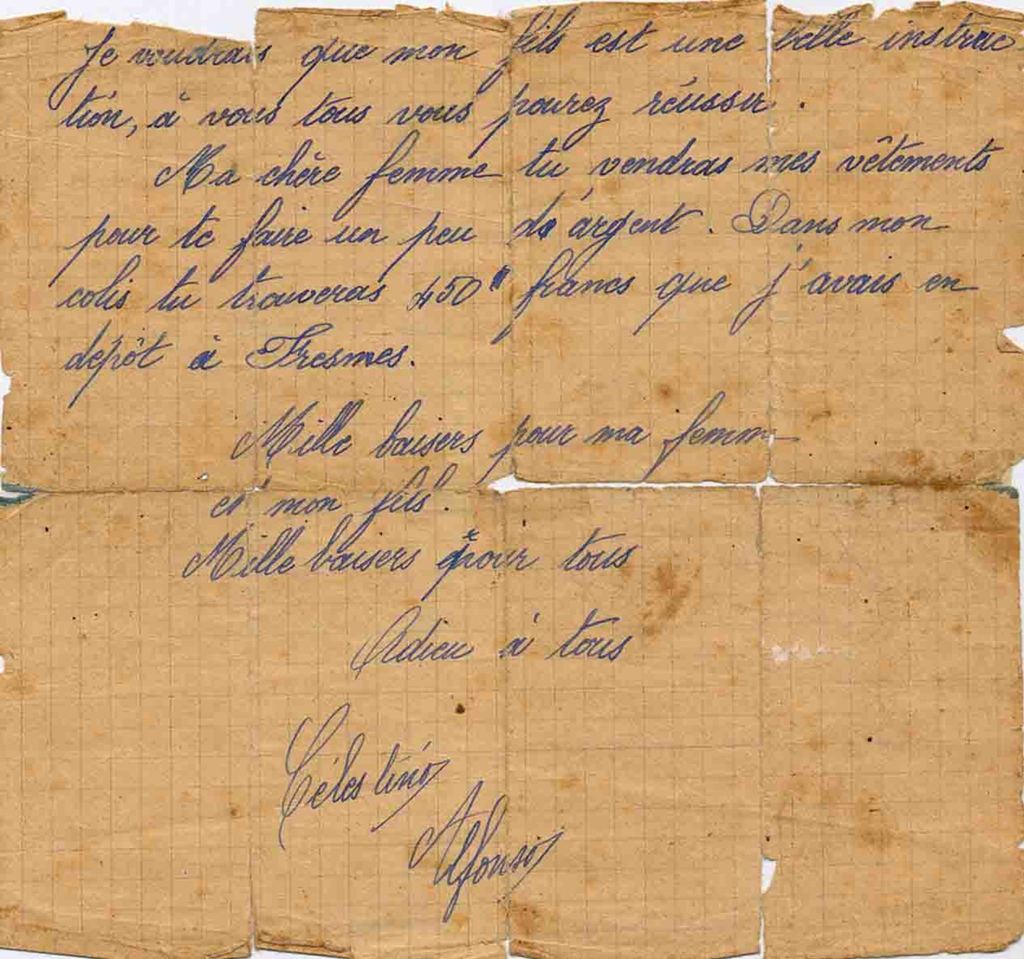 Je voudrais que mon fils est une belle instruc-
tion, à vous tous vous pourez réussir.
Ma chère femme tu vendras mes vêtements
pour te faire un peu d'argent. Dans mon
colis tu trouveras 450" francs que j'avais en
depôt à Fresmes.
Mille baisers pour ma femme
et mon fils.
Mille baisers pour tous
Adieu à tous
Célestino
Alfonso